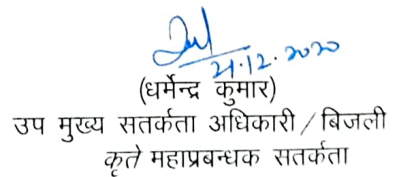 21.12.2020
(धर्मेन्द्र कुमार)
उप मुख्य सतर्कता अधिकारी / बिजली
कृते महाप्रबन्धक सतर्कता